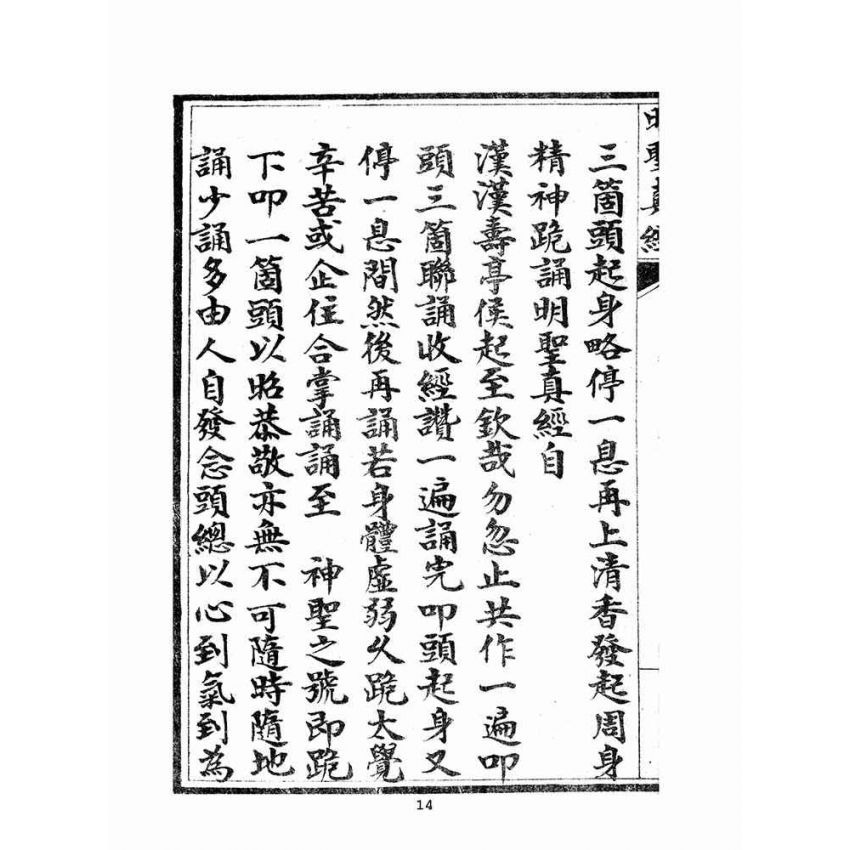 明聖真經
三箇頭起身略停一息再上清香發起周身
精神跪誦明聖真經自
漢漢壽亭侯起至欽哉勿忽止共作一遍叩
頭三箇聯誦收經讚一遍誦完叩頭起身又
停一息間然後再誦若身體虛弱久跪太覺
辛苦或企住合掌誦誦至　神聖之號即跪
下叩一箇頭以昭恭敬亦無不可隨時隨地
誦少誦多由人自發念頭總以心到氣到為
14